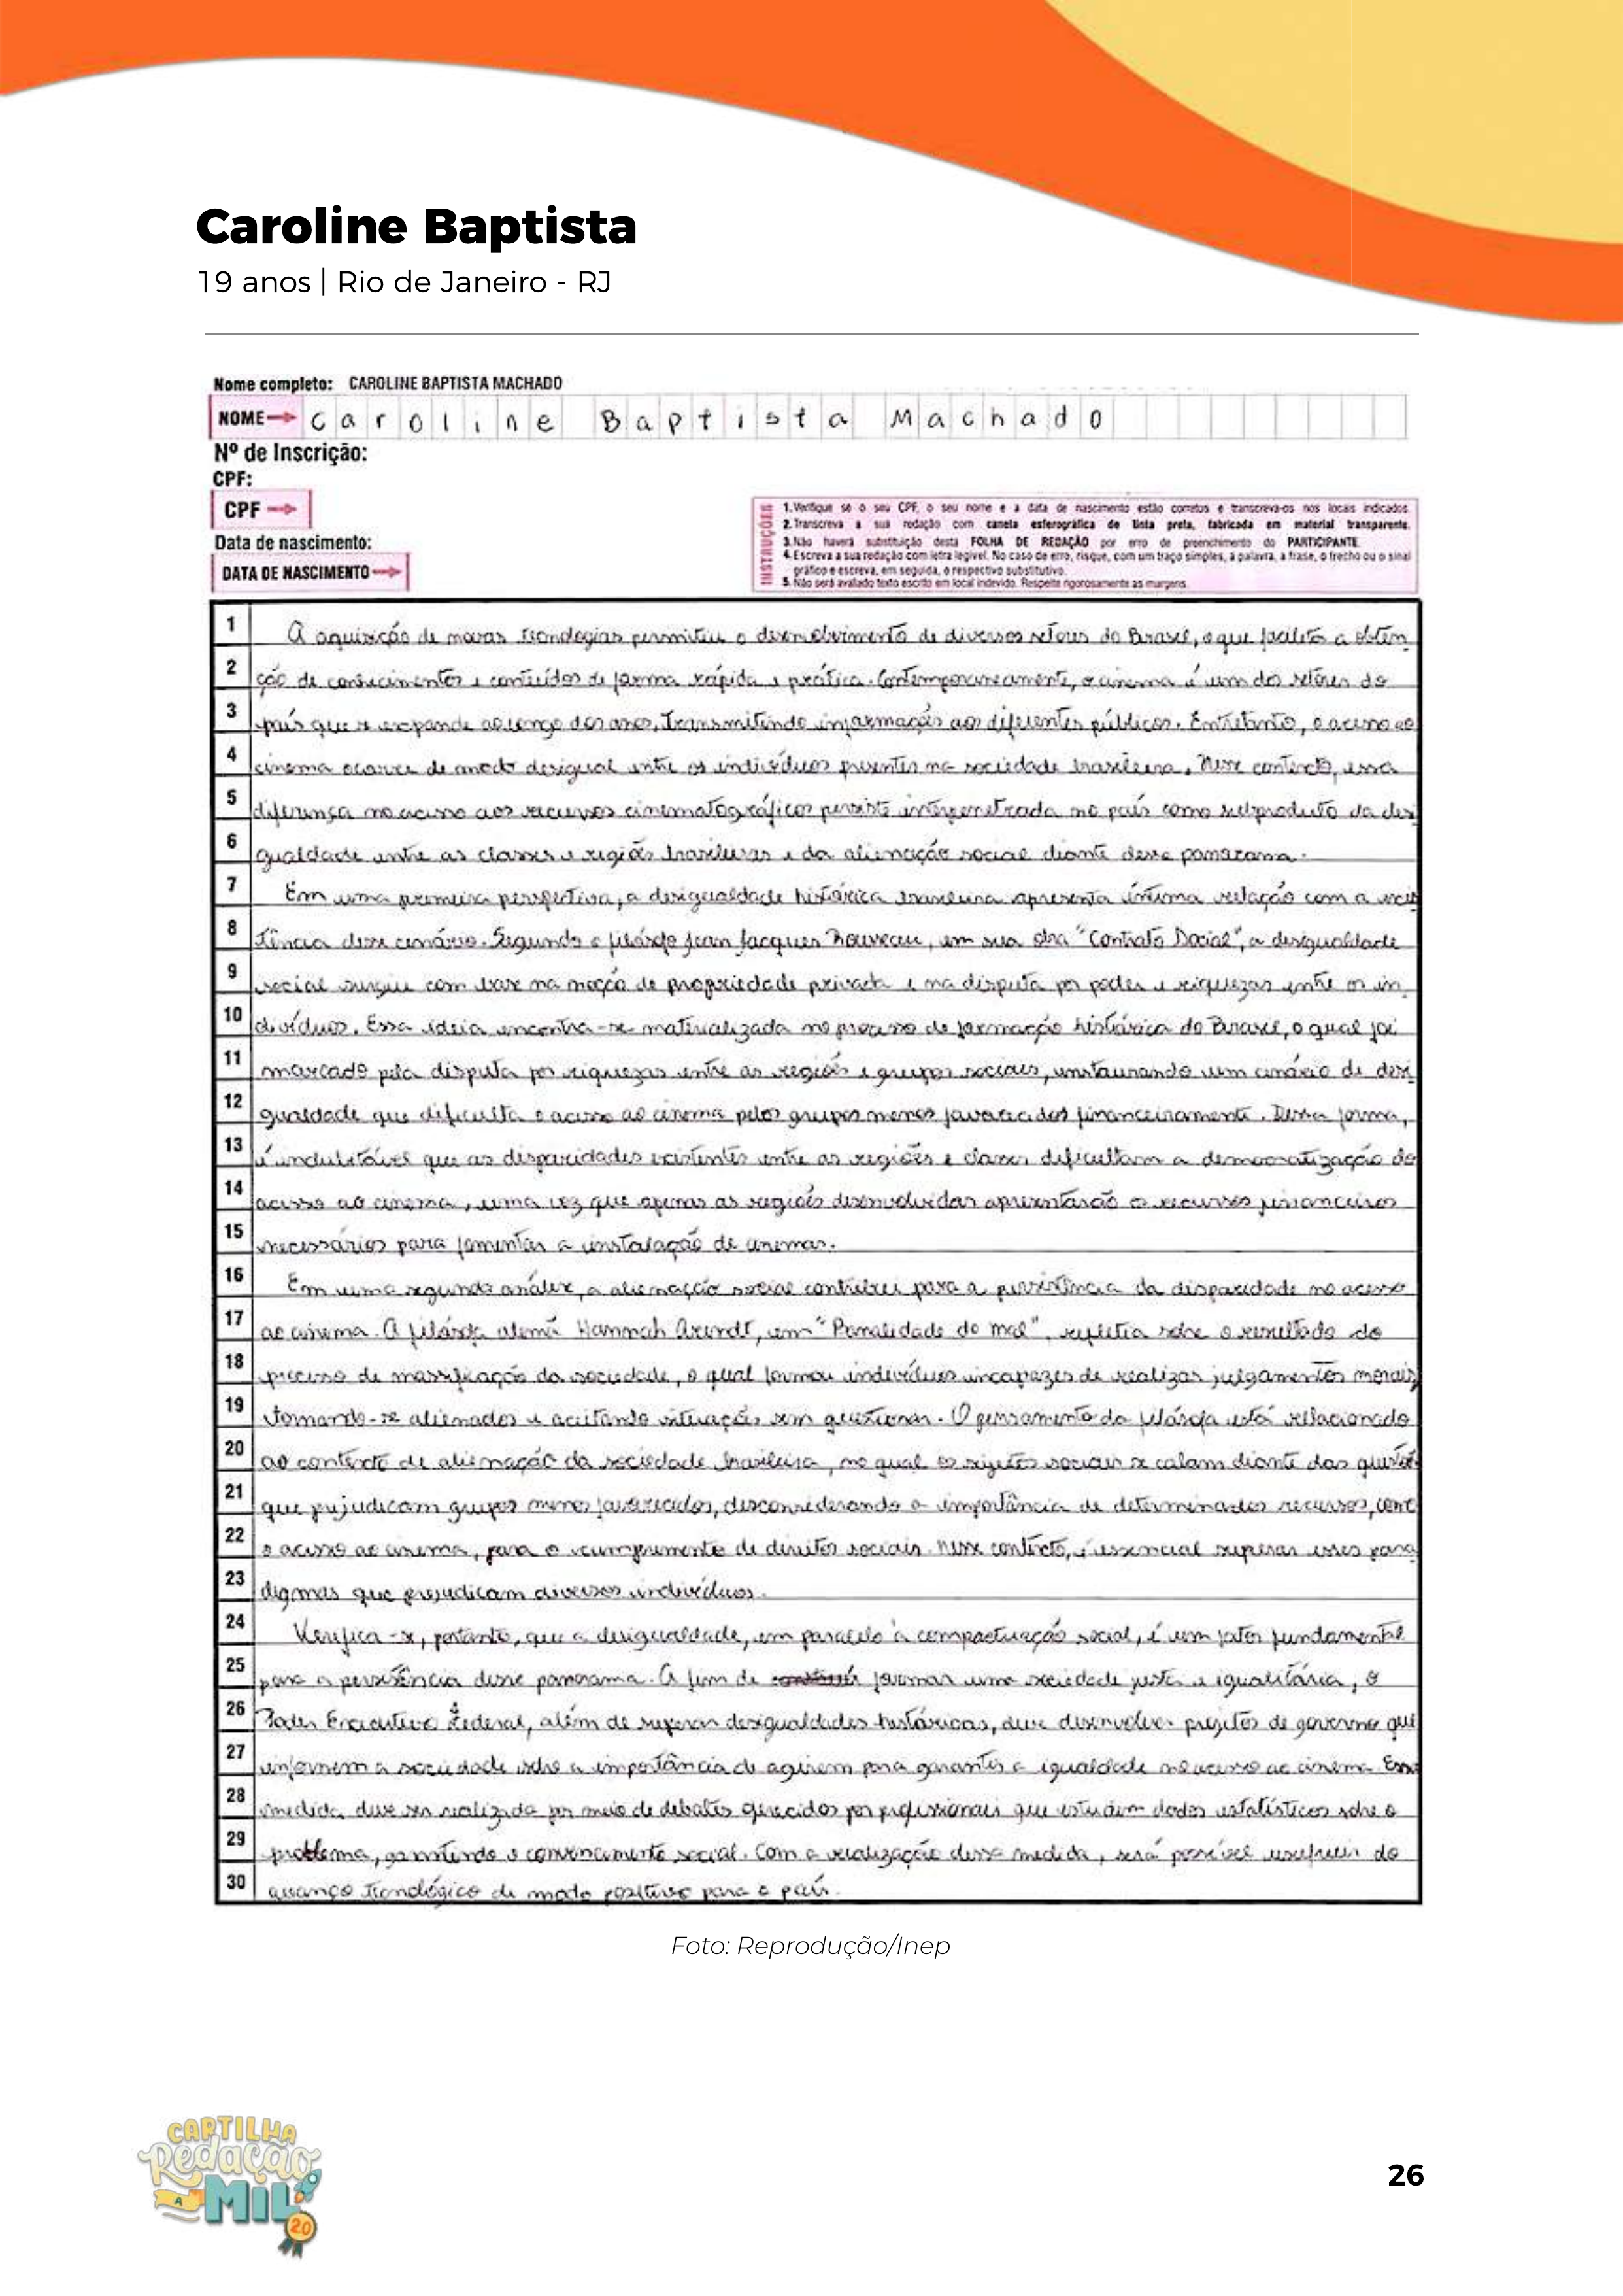 Caroline Baptista
19 anos | Rio de Janeiro - RJ
Nome completo: CAROLINE BAPTISTA MACHADO
NOME Caroline Baptista Machado
Nº de Inscrição:
CPF:
CPF
Data de nascimento:
DATA DE NASCIMENTO
INSTRUÇÕES
1. Verifique se o seu CPF, o seu nome e a data de nascimento estão corretos e transcreva-os nos locais indicados.
2. Transcreva a sua redação com caneta esferográfica de tinta preta, fabricada em material transparente.
3. Não haverá substituição desta FOLHA DE REDAÇÃO por erro de preenchimento do PARTICIPANTE.
4. Escreva a sua redação com letra legível. No caso de erro, risque, com um traço simples, a palavra, a frase, o trecho ou o sinal
gráfico e escreva, em seguida, o respectivo substitutivo.
5. Não será avaliado texto escrito em local indevido. Respeite rigorosamente as margens.
1 A aquisição de novas tecnologias permitiu o desenvolvimento de diversos setores do Brasil, o que facilita a obten
2 ção de conhecimentos e conteúdos de forma rápida e prática. Contemporaneamente, o cinema é um dos setores do
3 país que se expande ao longo dos anos, transmitindo informações aos diferentes públicos. Entretanto, o acesso ao
4 cinema ocorre de modo desigual entre os indivíduos presentes na sociedade brasileira. Nesse contexto, essa
5 diferença no acesso aos recursos cinematográficos persiste interpenetrada no país como subproduto da desi
6 gualdade entre as classes e regiões brasileiras e da alienação social diante desse panorama.
7 Em uma primeira perspectiva, a desigualdade histórica brasileira apresenta íntima relação com a exis
8 tência desse cenário. Segundo o filósofo Jean Jacques Rousseau, em sua obra "Contrato Social", a desigualdade
9 social surgiu com base na noção de propriedade privada e na disputa por poder e riquezas entre os in
10 divíduos. Essa ideia encontra-se materializada no processo de formação histórica do Brasil, o qual foi
11 marcado pela disputa por riquezas entre as regiões e grupos sociais, instaurando um cenário de desi
12 gualdade que dificulta o acesso ao cinema pelos grupos menos favorecidos financeiramente. Dessa forma,
13 é indubitável que as disparidades existentes entre as regiões e classes dificultam a democratização do
14 acesso ao cinema, uma vez que apenas as regiões desenvolvidas apresentarão os recursos financeiros
15 necessários para fomentar a instalação de cinemas.
16 Em uma segunda análise, a alienação social contribui para a persistência da disparidade no acesso
17 ao cinema. A filósofa alemã Hannah Arendt, em "Banalidade do mal", refletia sobre o resultado do
18 processo de massificação da sociedade, o qual formou indivíduos incapazes de realizar julgamentos morais,
19 tornando-se alienados e aceitando situações sem questionar. O pensamento da filósofa está relacionado
20 ao contexto de alienação da sociedade brasileira, no qual os sujeitos sociais se calam diante das questões
21 que prejudicam grupos menos favorecidos, desconsiderando a importância de determinados recursos, como
22 o acesso ao cinema, para o cumprimento de direitos sociais. Nesse contexto, é essencial superar esses para
23 digmas que prejudicam diversos indivíduos.
24 Verifica-se, portanto, que a desigualdade, em paralelo à compactuação social, é um fator fundamental
25 para a persistência desse panorama. A fim de formar uma sociedade justa e igualitária, o
26 Poder Executivo Federal, além de superar desigualdades históricas, deve desenvolver projetos de governo que
27 informem a sociedade sobre a importância de agirem para garantir a igualdade no acesso ao cinema. Essa
28 medida deve ser realizada por meio de debates oferecidos por profissionais que estudam dados estatísticos sobre o
29 problema, garantindo o convencimento social. Com a realização dessa medida, será possível usufruir do
30 avanço tecnológico de modo positivo para o país.
Foto: Reprodução/Inep
CARTILHA
Redação
A MIL
20
26